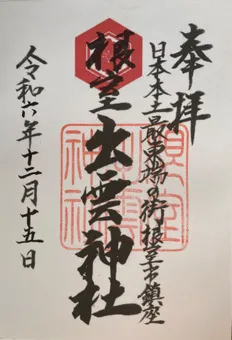 奉拝
日本本土最東端の街根室市鎮座
根室出雲神社
令和六年十二月十五日